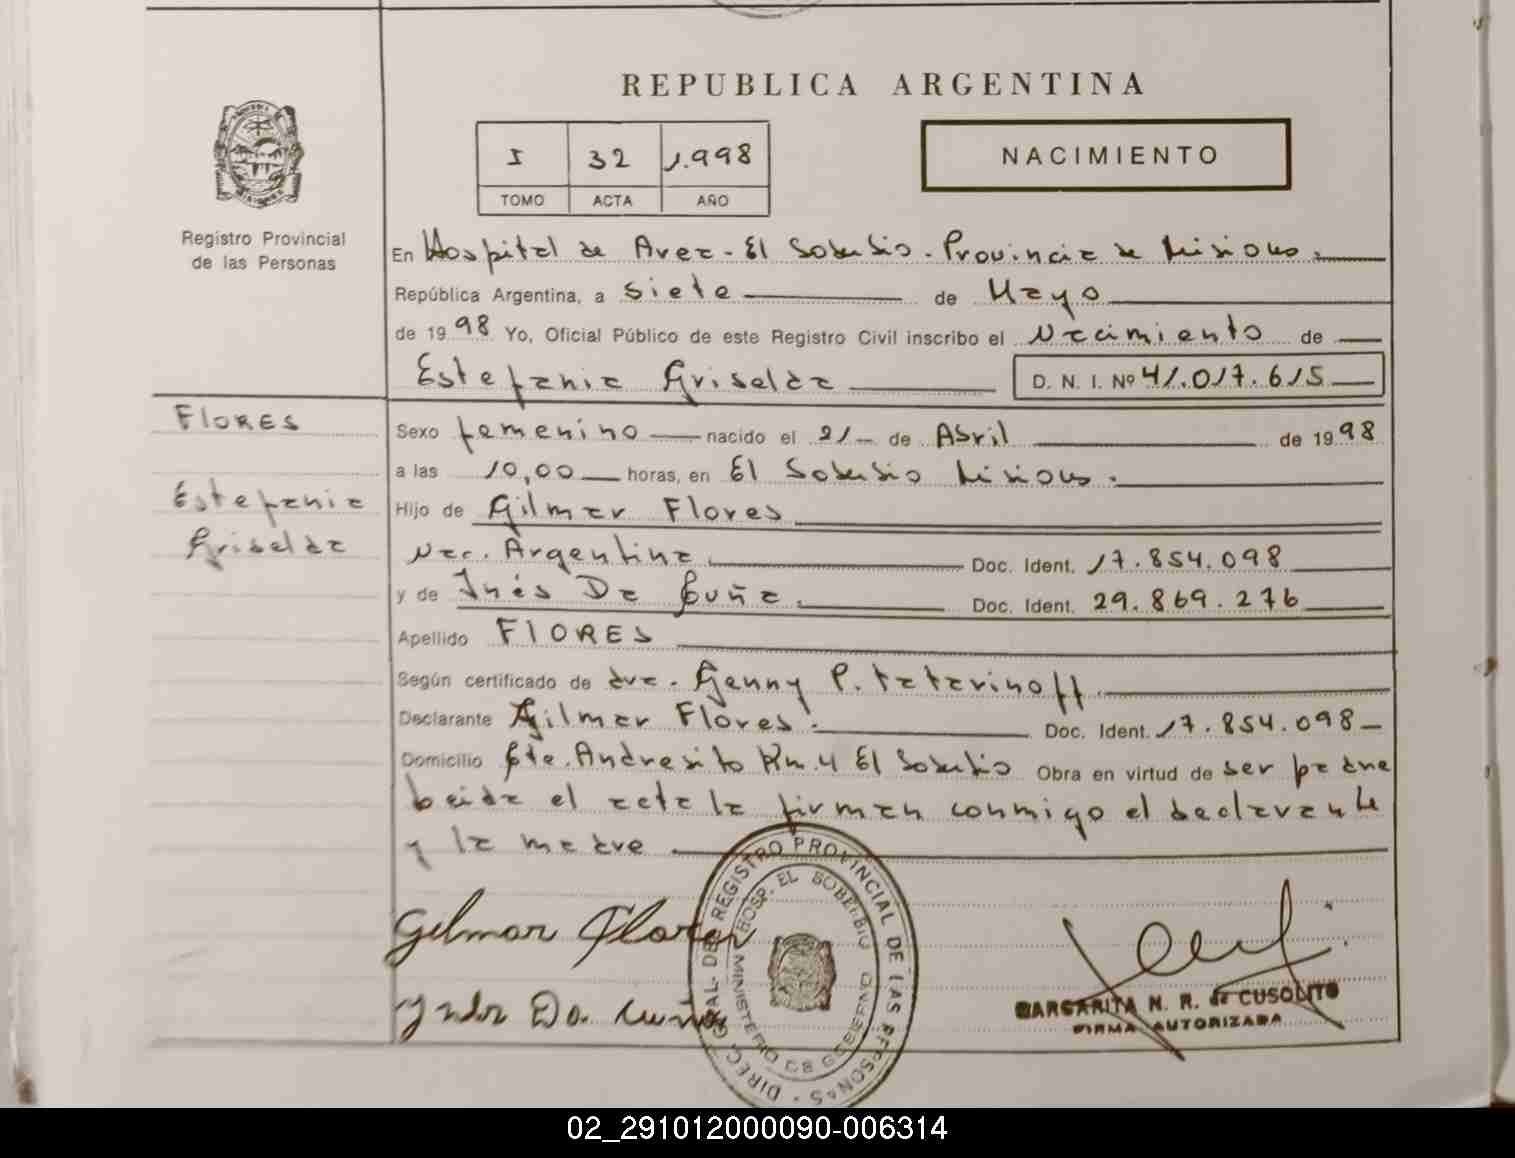 REPUBLICA ARGENTINA
I 32 1.998
TOMO ACTA AÑO
NACIMIENTO
Registro Provincial
de las Personas
En Hospital de Area - El Soberbio - Provincia de Misiones.
República Argentina, a siete de Mayo
de 1998 Yo, Oficial Público de este Registro Civil inscribo el Nacimiento de
Estefania Griselda D. N. I. Nº 41.017.615
FLORES
Estefania
Griselda
Sexo femenino nacido el 21 de Abril de 1998
a las 10,00 horas, en El Soberbio Misiones.
Hijo de Gilmar Flores
Nac. Argentina Doc. Ident. 17.854.098
y de Inés Da Cuña. Doc. Ident. 29.869.276
Apellido FLORES
Según certificado de dra. Genny P. Tatarinoff
Declarante Gilmar Flores. Doc. Ident. 17.854.098
Domicilio Cte. Andresito Km. 4 El Soberbio Obra en virtud de ser padre
leida el acta la firman conmigo el declarante
y la madre
Gilmar Flores
Da. Cuña
DIREC. GRAL. DEL REGISTRO PROVINCIAL DE LAS PERSONAS
HOSP. EL SOBERBIO
MINISTERIO DE GOBIERNO
MARGARITA N. R. de CUSOLITO
FIRMA AUTORIZADA
02_291012000090-006314